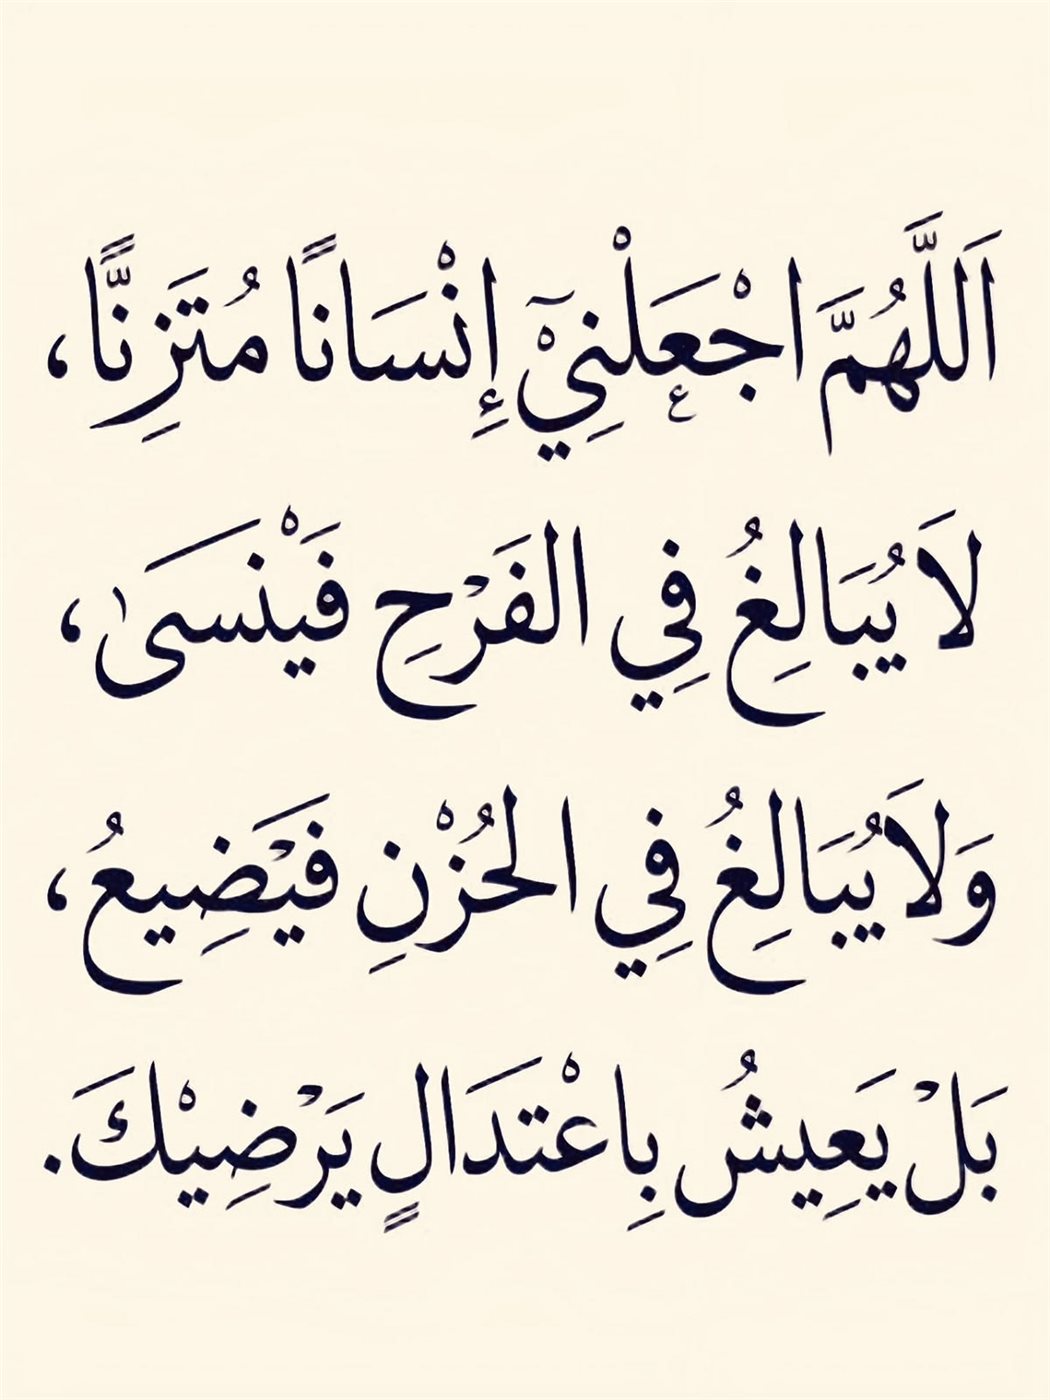 اَللَّهُمَّ اجْعَلْنِيْٓ إِنْسَانًا مُتَزِنًّا،
لَا يُبَالِغُ فِي الفَرْحِ فَيَنْسَىٰ،
وَلَا يُبَالِغُ فِي الحُزْنِ فَيَضِيعُ،
بَلْ يَعِيشُ بِاعْتَدَالٍ يَرْضِيْكَ.